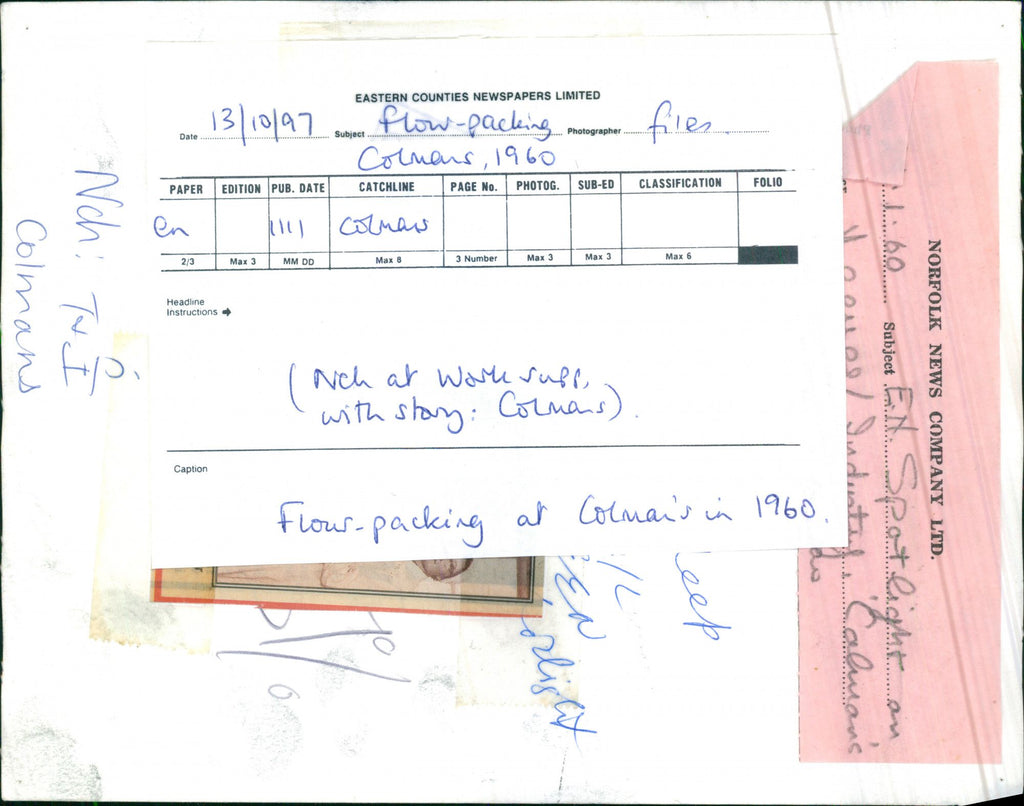 EASTERN COUNTIES NEWSPAPERS LIMITED
Date 13/10/97 Subject Flour-packing Photographer files.
Colmans, 1960
PAPER EDITION PUB. DATE CATCHLINE PAGE No. PHOTOG. SUB-ED CLASSIFICATION FOLIO
en 1111 Colmans
2/3 Max 3 MM DD Max 8 3 Number Max 3 Max 3 Max 6
Headline
Instructions
(Nch at Work supp.
with story: Colmans).
Caption
Flour-packing at Colman's in 1960.
Nch:
Colmans
NORFOLK NEWS COMPANY LTD.
1.60 Subject E.N. Spotlight on
Colman's
eep